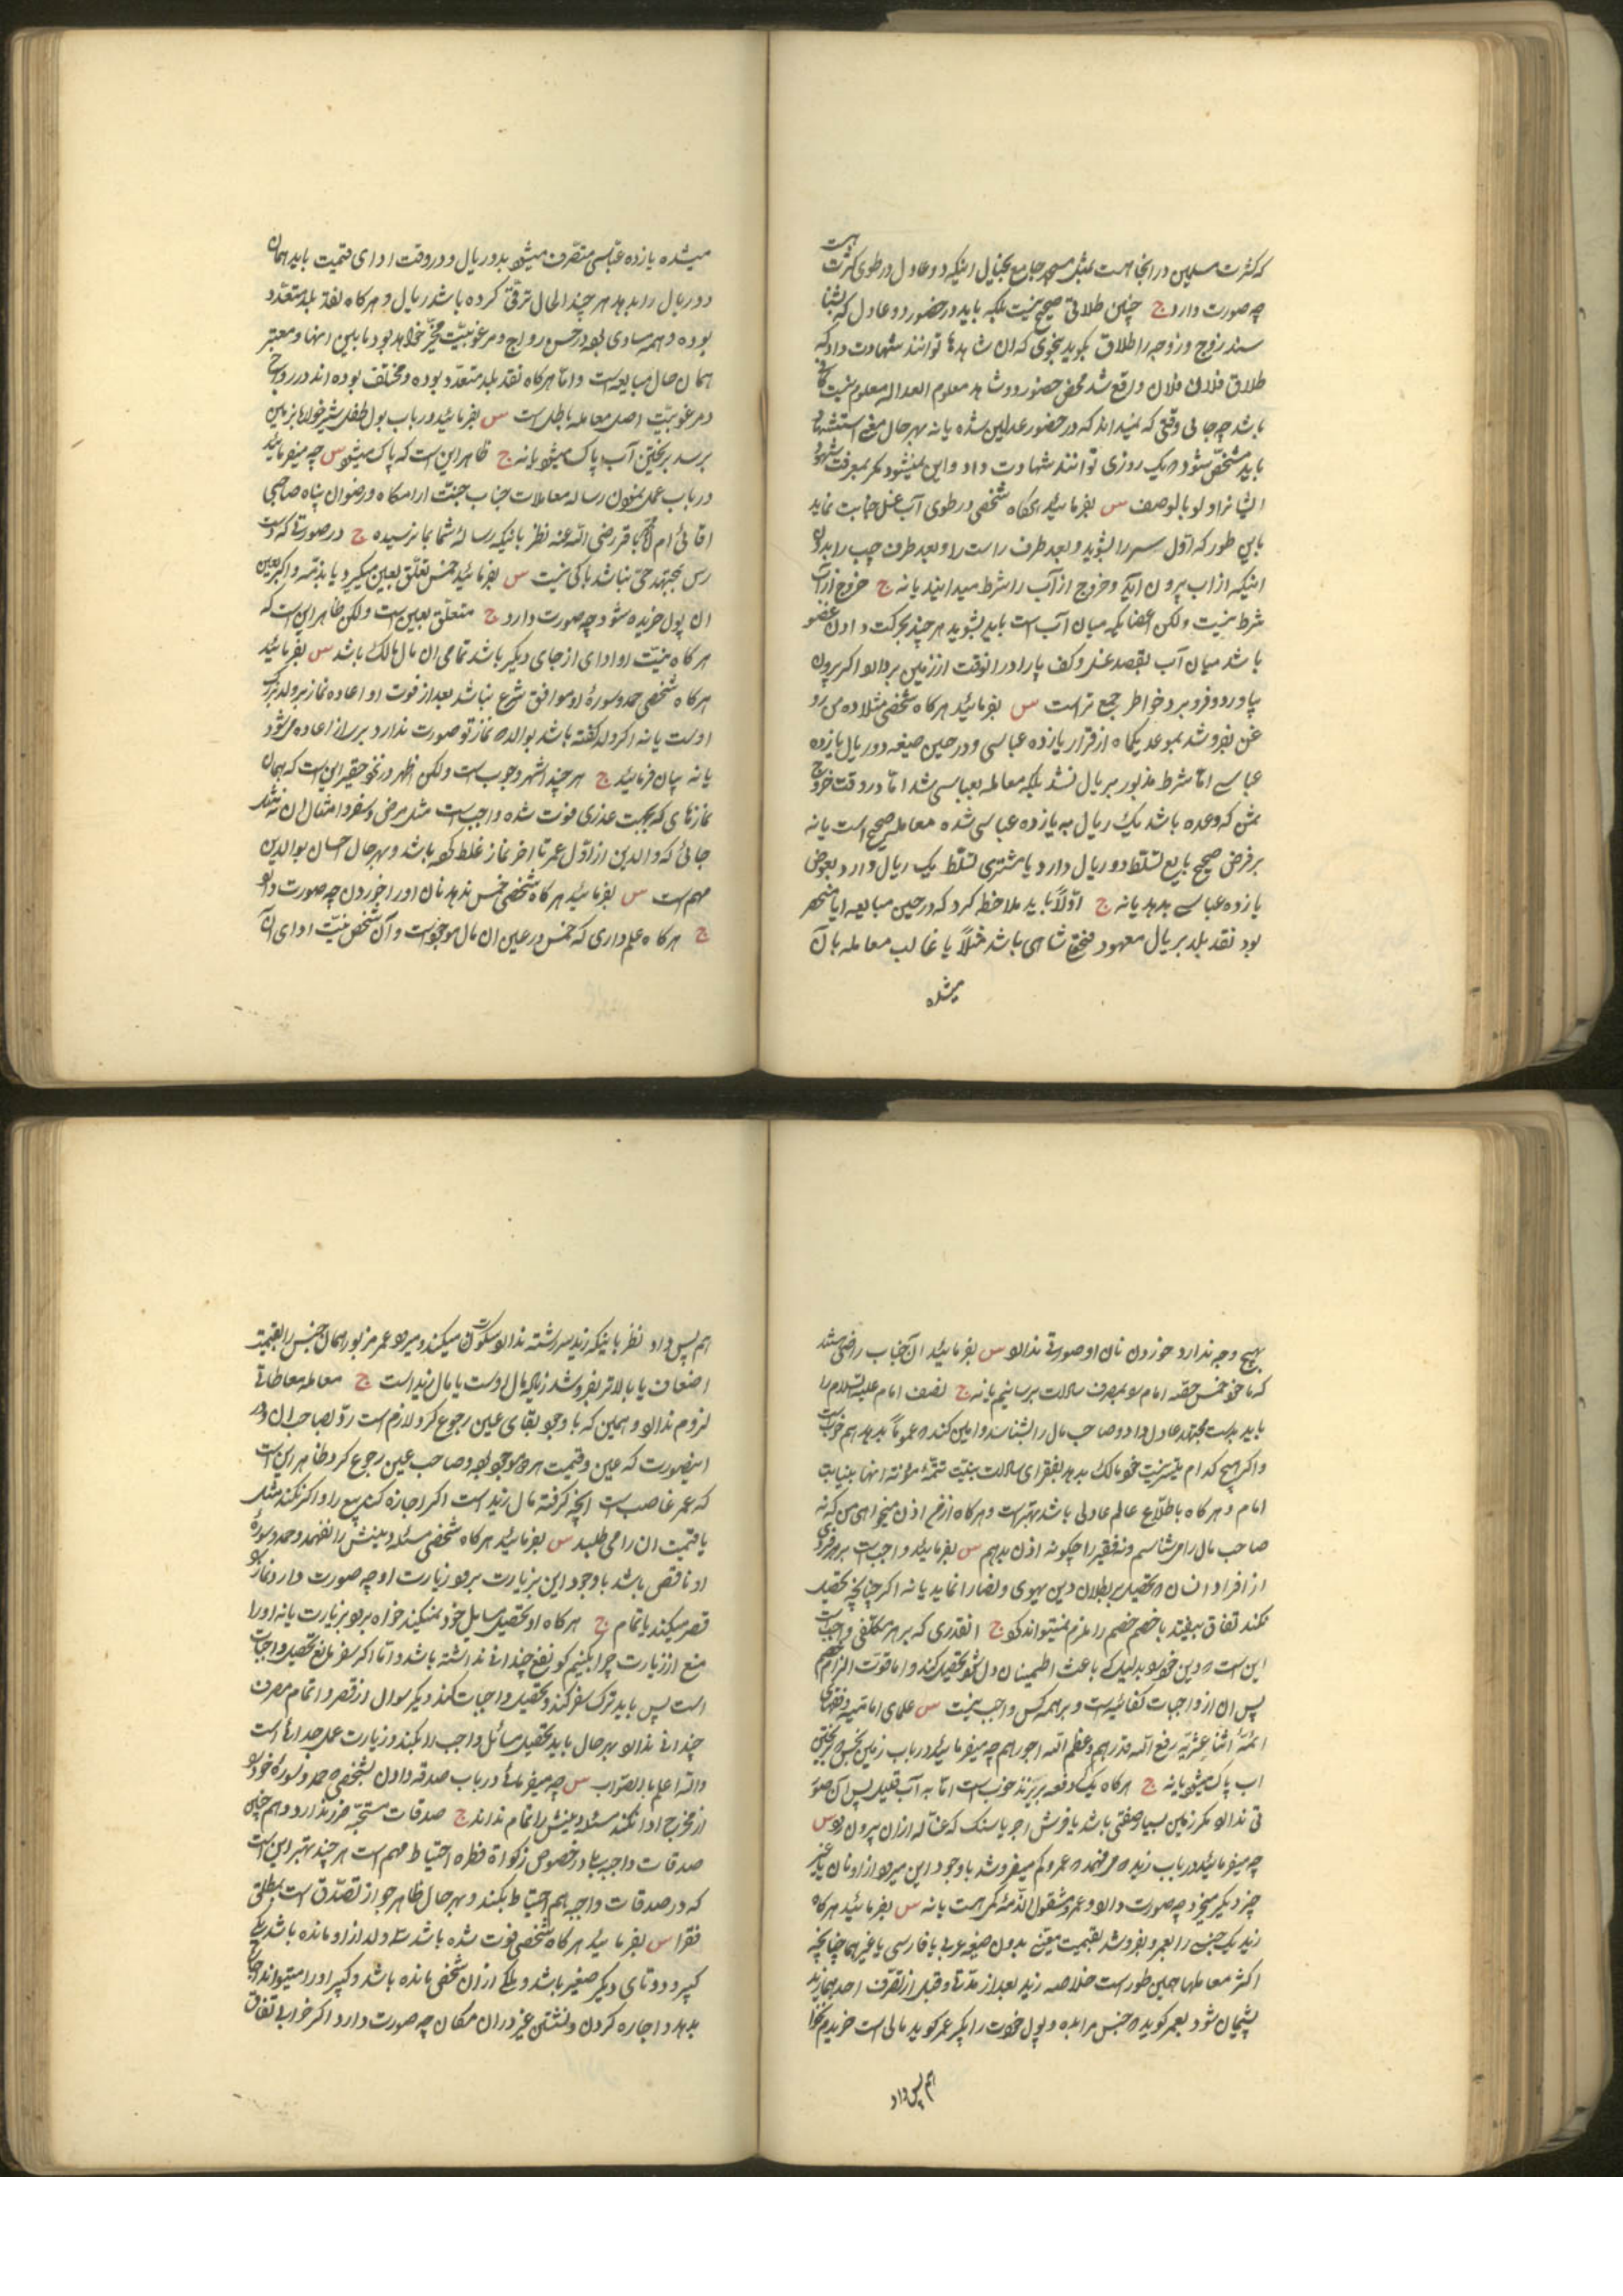 که کثرت مسلمین در انجا هست مثل مسجد جامع بخیال اینکه دو عادل در طوی کثرت هست
چه صورت دارد ج چنین طلاقی صحیح نیست بلکه باید در حضور دو عادل که بشنا
سند زوج و زوجه را طلاق بگوید بنحوی که ان شاهدها توانند شهادت داد که
طلاق فلان فلان واقع شد محض حضور دو شاهد معلوم العداله معلوم نیست کافی
باشد چه جای وقتی که نمیداند که در حضور عدلین شده یا نه بهر حال معنی استشهاد
باید مشخص شود که یک روزی توانند شهادت داد و این نمیشود مگر بمعرفت شهود
ایشانرا و لو بالوصف س بفرمائید هرگاه شخصی در طوی آب غسل جنابت نماید
باین طور که اول سر را بشوید و بعد طرف راست را و بعد طرف چپ را بدون
اینکه از اب بیرون اید و خروج از آب را شرط میدانید یا نه ج خروج از آب
شرط نیست ولکن اعضائیکه میان آب است باید بشوید هر چند بحرکت دادن عضو
باشد میان آب بقصد غسل و کف پا را در انوقت از زمین بردارد و اگر بیرون
بیاورد و فرو برد خاطر جمع تر است س بفرمائید هرگاه شخصی مثلا ده من رو
غن بفروشد بموعد یکماه از قرار یازده عباسی و در حین صیغه دو ریال یازده
عباسی امّا شرط مذبور بر ریال نشد بلکه معامله بعباسی شد امّا در وقت خروج
ثمن که وعده باشد یک ریال به یازده عباسی شده معامله صحیح است یا نه
بر فرض صحیح بایع تسلّط دو ریال دارد یا مشتری تسلّط یک ریال دارد بعوض
یازده عباسی بدهد یا نه ج اوّلاً باید ملاحظه کرد که در حین مبایعه ایا منحصر
بود نقد بلد بریال معهود فتحعلیشاهی باشد مثلاً یا غالب معامله بآن
میشده
میشده یازده عبّاسی منصرف میشود بدو ریال و در وقت ادای قیمت باید همان
دو ریال را بدهد هر چند الحال ترقّی کرده باشد ریال و هرگاه نقد بلد متعدّد
بوده و همه مساوی بوده در حسن رواج و مرغوبیّت مخیّر خواهد بود ما بین انها و معتبر
همان حال مبایعه است و امّا هرگاه نقد بلد متعدّد بوده و مختلف بوده اند در رواج
و مرغوبیّت اصل معامله باطل است س بفرمائید در باب بول طفل شیرخواره بزمین
برسد بریختن آب پاک میشود یا نه ج ظاهر این است که پاک میشود س چه میفرمائید
در باب عمل نمودن رساله معاملات جناب جنّت ارامگاه و رضوان پناه صاحبی
اقائی ام محمد باقر رضی الله عنه نظر باینکه رساله شما بما نرسیده ج در صورتی که دست
رس بمجتهد حیّ نباشد باکی نیست س بفرمائید خمس تعلّق بعین میگیرد یا بذمّه و اگر بعین
ان پول خریده شود چه صورت دارد ج متعلّق بعین است ولکن ظاهر این است که
هرگاه نیّت او ادای از جای دیگر باشد تمامی ان مال مالک باشد س بفرمائید
هرگاه شخصی حمد و سوره او موافق شرع نباشد بعد از فوت او اعاده نماز بر ولد بزرگ
اوست یا نه اگر ولد گفته باشد بوالد که نماز تو صورت ندارد بر پسر اعاده میشود
یا نه بیان فرمائید ج هر چند اشهر وجوب است ولکن اظهر در نحو حقیر این است که همان
نمازهای که بجهت عذری فوت شده واجب است مثل مرض و سفر و امثال ان نه مثل
جائی که والدین از اوّل عمر تا اخر نماز غلط کرده باشد و بهر حال احسان بوالدین
مهم است س بفرمائید هرگاه شخصی خمس ندهد نان او را خوردن چه صورت دارد
ج هرگاه علم داری که خمس در عین ان مال موجود است و آن شخص نیّت ادای آن
بهیچ وجه ندارد خوردن نان او صورتی ندارد س بفرمائید آن جناب راضی هستند
که ما خود خمس حصّه امام را بمصرف سادات برسانیم یا نه ج نصف امام علیه السّلام را
باید بدست مجتهد عادل داد و صاحب مال را بشناسد و امین کند که عموماً بدهد هم خوب است
و اگر هیچ کدام میّسر نیست خود مالک بدهد بفقرای سادات بنیّت تتمّهٔ مؤنه انها بنیابت
امام و هرگاه باطّلاع عالم عادلی باشد بهتر است و هرگاه از من اذن میخواهی من که نه
صاحب مال را می شناسم و نه فقیر را چگونه اذن بدهم س بفرمائید واجب است بر هر فردی
از افراد انسان که تحصیل بر بطلان دین یهودی و نصارا نماید یا نه اگر چنانچه تحصیل
نکند اتفاق بیفتد با خصم خصم را ملزم نمیتواند کرد ج انقدری که بر هر مکلّفی واجب است
این است که دین خود را بدلیلی که باعث اطمینان دل شود تحصیل کند و اما قوّت الزام خصم
پس ان از واجبات کفائیست و بر همه کس واجب نیست س علمای امامیّه و فقهای
ائمّهٔ اثنا عشریّه رفع الله قدرهم و عظم الله اجورهم چه میفرمائید در باب زمین نجس که بریختن
اب پاک میشود یا نه ج هرگاه یک دفعه بریزند خوب است امّا به آب قلیل پس آن صور
تی ندارد مگر زمین بسیار صفتی باشد یا فرش اجر یا سنگ که غساله از ان بیرون رود س
چه میفرمائید در باب زید که میفهمد که عمرو کم میفروشد با وجود این میرود از او نان یا غیر
چیز دیگر میخرد چه صورت دارد و عمرو مشغول الذمّهٔ کی هست یا نه س بفرمائید هرگاه
زید یک جنسی را بعمرو بفروشد بقیمت معیّن بدون صیغه عربی یا فارسی یا غیرهما چنانچه
اکثر معاملها همین طور است خلاصه زید بعد از مدّتی و قبل از تصرّف احدهما زید
پشیمان شود بعمرو گوید که جنس مرا بده و پول خودت را بگیر عمرو گوید مالی است خریدم نخواهم
هم پس داد
هم پس داد نظر باینکه زید سررشته ندارد سکوت میکند و میرود عمرو مزبور همان جنس را بقیمت
اضعاف یا بالاتر بفروشد زیاد مال اوست یا مال زید است ج معامله معاطاتی
لزوم ندارد و همین که با وجود بقای عین رجوع کرد لازم است ردّ بصاحب ان و در
اینصورت که عین و قیمت هر دو موجود بود و صاحب عین رجوع کرد ظاهر این است
که عمرو غاصب است انچه گرفته مال زید است اگر اجازه کند بیع را و اگر نکند مثل
یا قیمت ان را می طلبد س بفرمائید هرگاه شخصی مسئله دینش را نفهمد و حمد و سورهٔ
او ناقص باشد با وجود این بزیارت برود زیارت او چه صورت دارد و نماز او
قصر میکند یا تمام ج هرگاه او تحصیل مسایل خود نمیکند خواه برود بزیارت یا نه او را
منع از زیارت چرا بکنیم گو نفع چندانی نداشته باشد و امّا اگر سفر مانع تحصیل واجبات
است پس باید ترک سفر کند و تحصیل واجبات کند دیگر سوال از قصر و اتمام مصرف
چندانی ندارد بهر حال باید تحصیل مسائل واجب را بکند و زیارت عمل جداگانه است
والله اعلم بالصّواب س چه میفرمائید در باب صدقه دادن بشخصی که حمد و سوره خود را
از مخرج ادا نکند مسئله دینش را تمام نداند ج صدقات مستحبّه ضرر ندارد و هم چنین
صدقات واجبه بلی در خصوص زکواة فطره احتیاط مهم است هر چند بهتر این است
که در صدقات واجبه هم احتیاط بکند و بهر حال ظاهر جواز تصدّق است بمطلق
فقرا س بفرمائید هرگاه شخصی فوت شده باشد سه ولد از او مانده باشد یکی
کبیر و دو تای دیگر صغیر باشد و ملکی از ان شخص مانده باشد و کبیر او را میتواند اجاره
بدهد و اجاره کردن و نشستن غیر در ان مکان چه صورت دارد اگر خرابی اتفاق